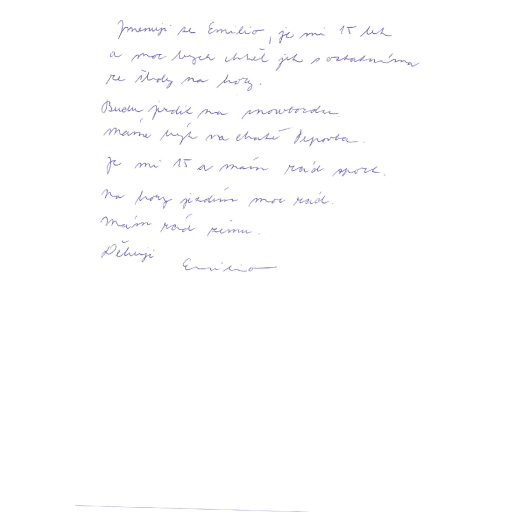 Jmenuji se Emilio, je mi 15 let
a moc bych chtěl jet s ostatníma
ze školy na hory.
Budu jezdit na snowboardu
máme být na chatě
Je mi 15 a mám rád sport.
Na hory jezdím moc rád.
Mám rád zimu.
Děkuji
Emilio